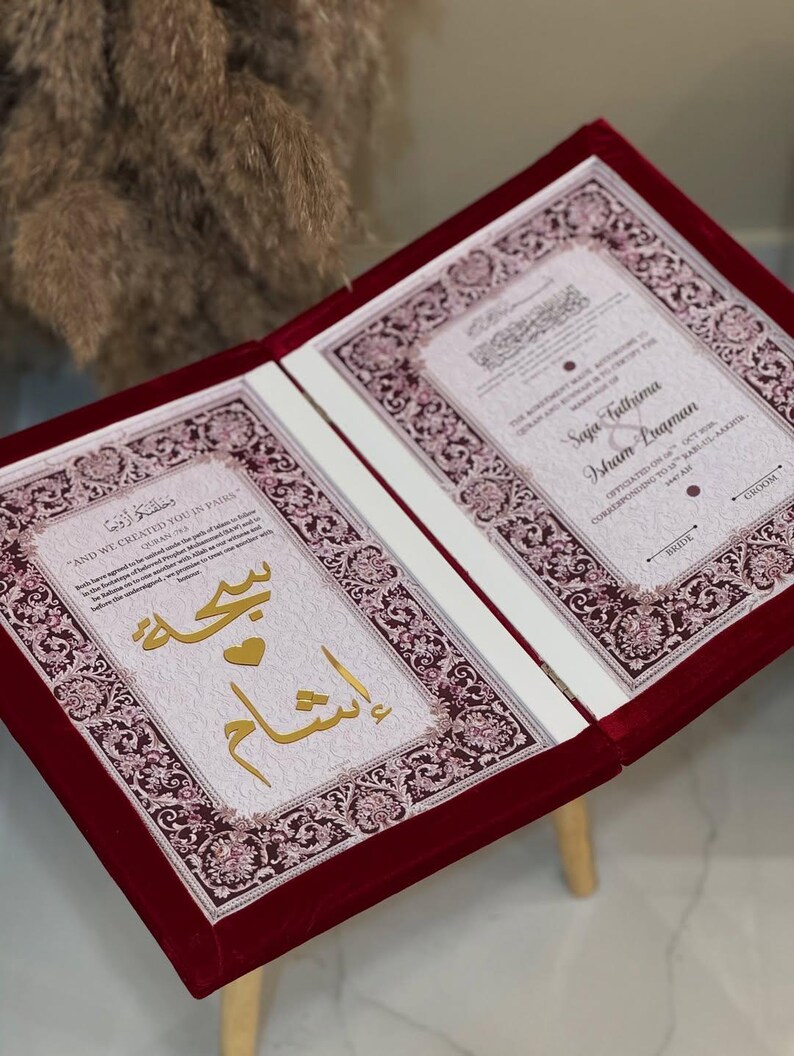 وَخَلَقْنَاكُمْ أَزْوَاجًا
"AND WE CREATED YOU IN PAIRS"
QURAN -78:8
Both have agreed to be united unde the path of Islam to follow
in the footsteps of beloved Prophet Muhammed (SAW) and to
be Rahma on to one another with Allah as our witness and
before the undersigned , we promise to treat one another with
honour.
سجىة
إشام
THE AGREEMENT MADE ACCORDING TO
QURAN AND SUNNAH IS TO CERTIFY THE
MARRIAGE OF
Saja Fathima
&
Isham Luqman
OFFICIATED ON 06TH OCT 2025,
CORRESPONDING TO 13TH RABI-UL-AAKHIR,
1447 AH
BRIDE
GROOM